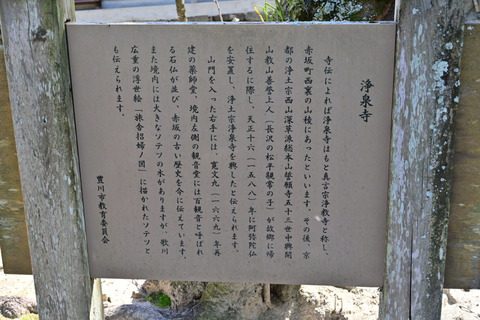 浄泉寺
寺伝によれば浄泉寺はもと真言宗浄教寺と称し、
赤坂町西裏の山裾にあったといいます。その後、京
都の浄土宗西山深草派総本山誓願寺五十三世中興開
山教山善誉上人(長沢の松平親常の子)が故郷に帰
住するに際し、天正十六(一五八八)年に阿弥陀仏
を安置し、浄土宗浄泉寺を興したと伝えられます。
山門を入った右手には、寛文九(一六六九)年再
建の薬師堂、境内左側の観音堂には百観音と呼ばれ
る石仏が並び、赤坂の古い歴史を今に伝えています。
また境内には大きなソテツの木がありますが、歌川
広重の浮世絵「旅舎招婦ノ図」に描かれたソテツと
も伝えられます。
豊川市教育委員会